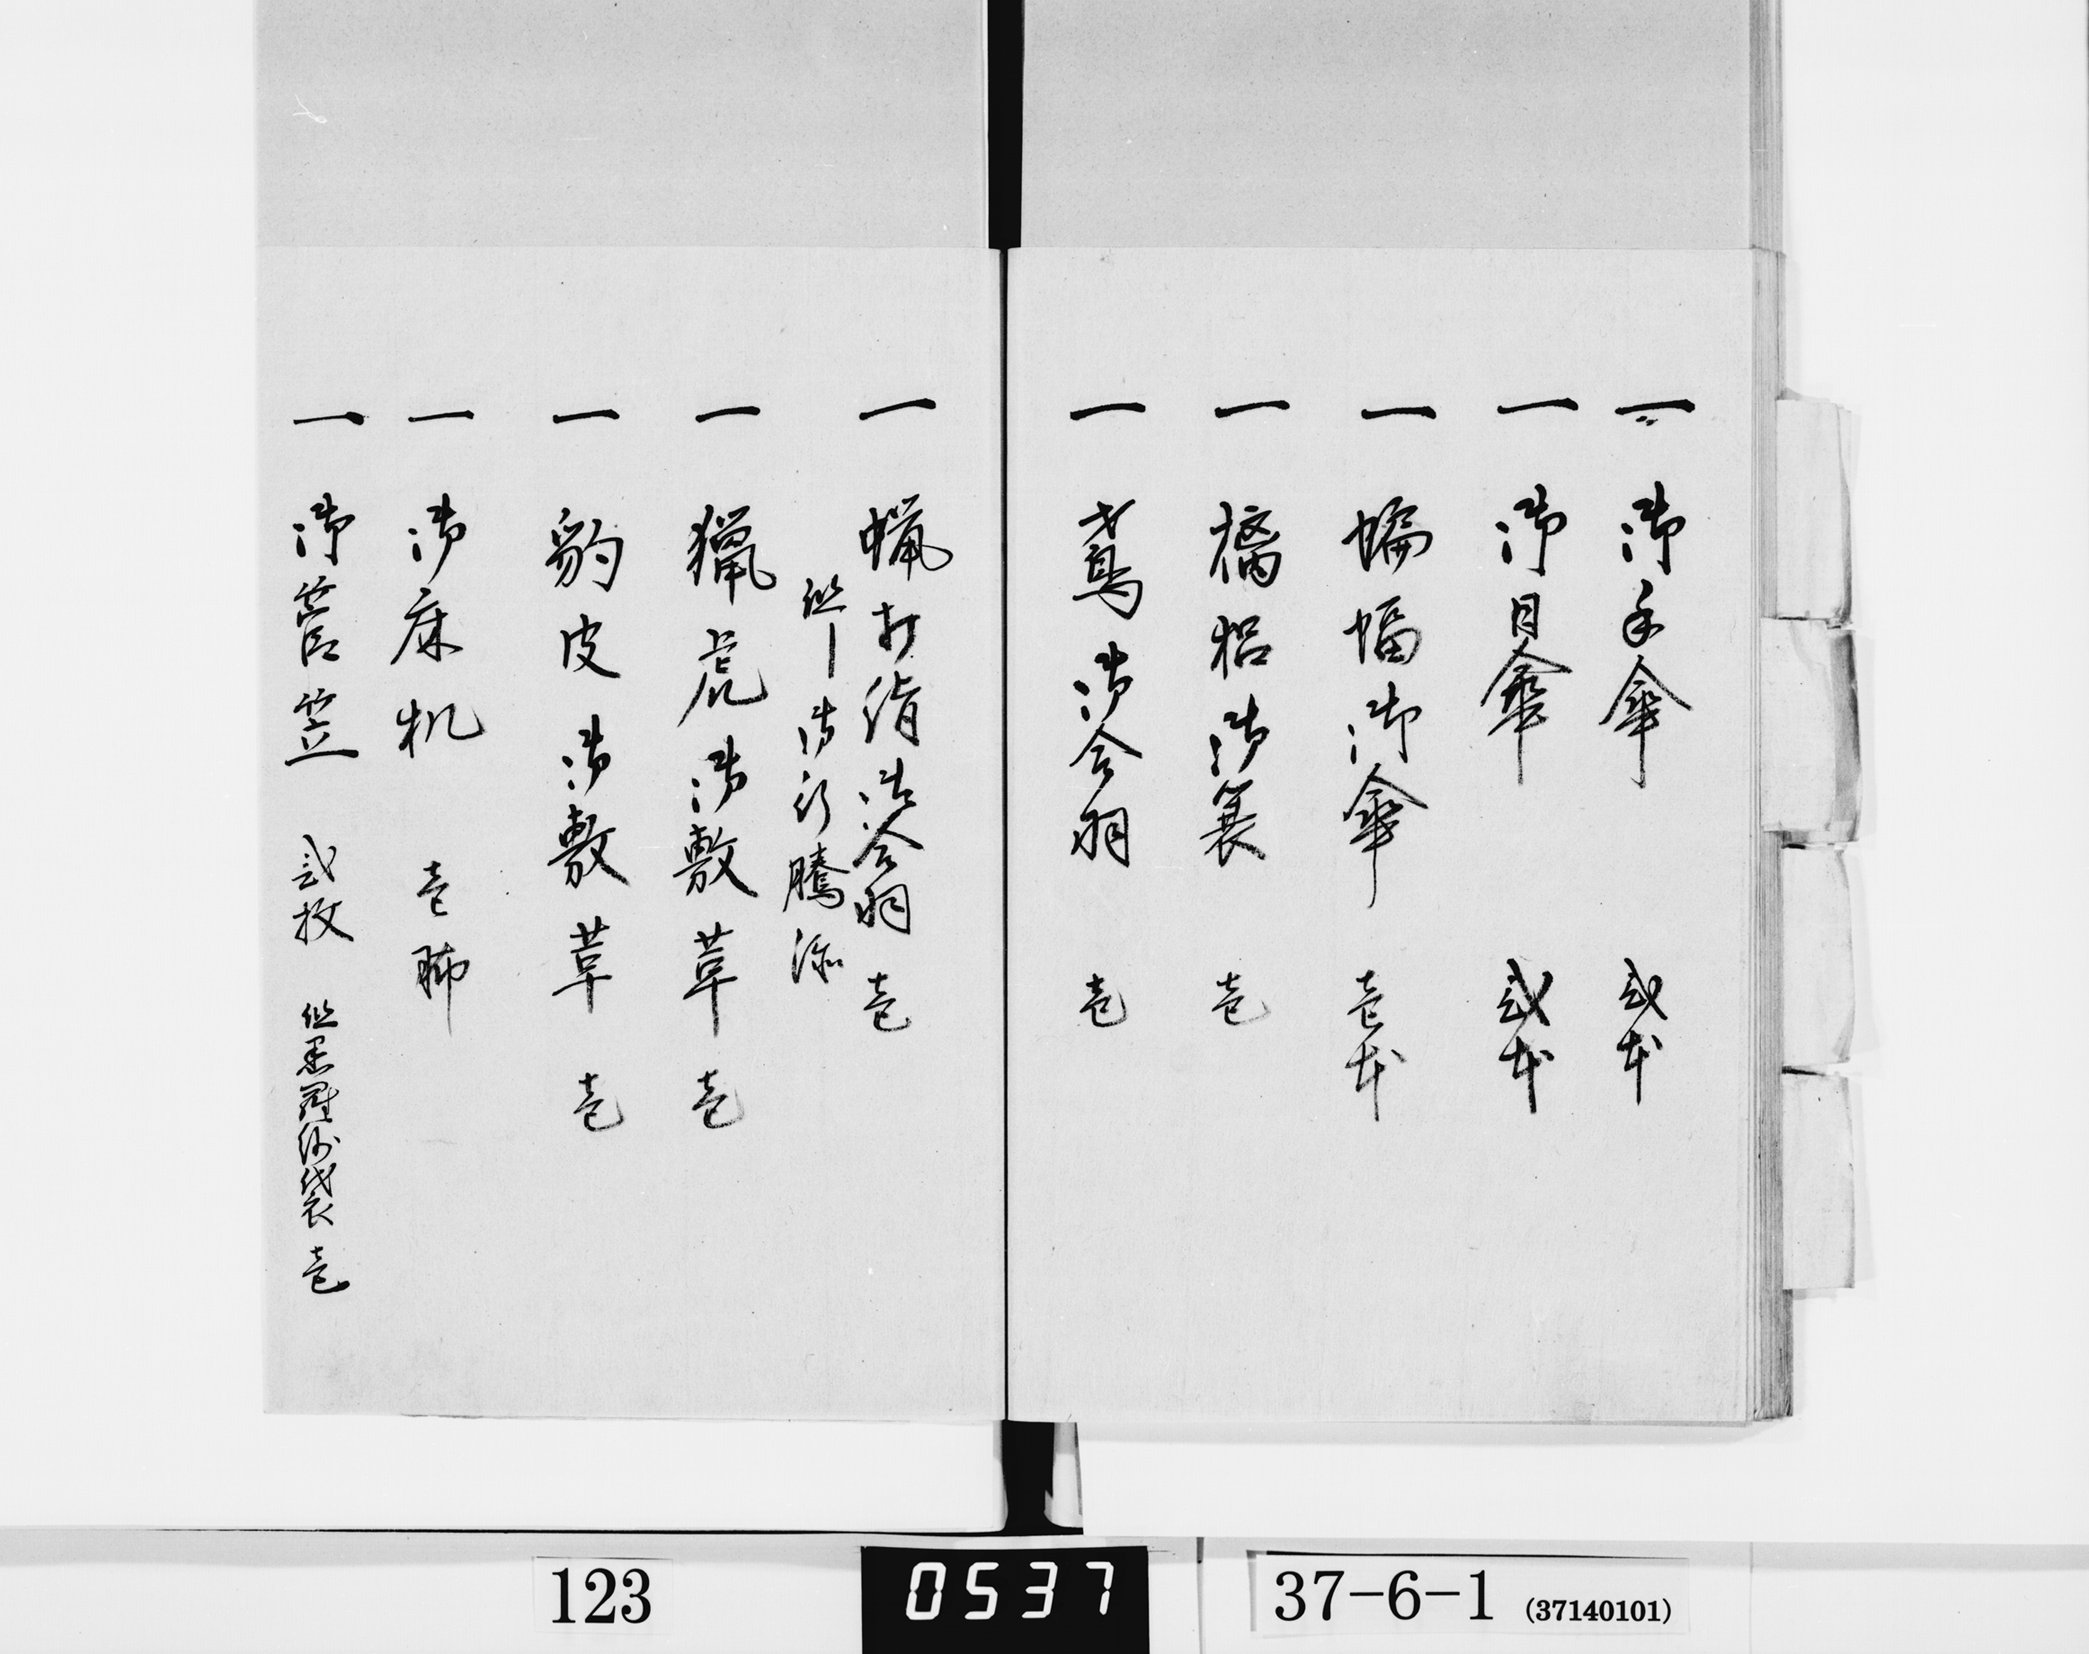 一 御手傘 弐本
一 御日傘 弐本
一 蝙蝠御傘 壱本
一 棕梠御蓑 壱
一 鳶御合羽 壱
一 蝋打絹御合羽 壱
但シ御行騰添
一 猟虎御敷革 壱
一 豹皮御敷革 壱
一 御床机 壱脚
一 御菅笠 弐枚 但黒羅紗袋壱
123
0537
37-6-1 (37140101)